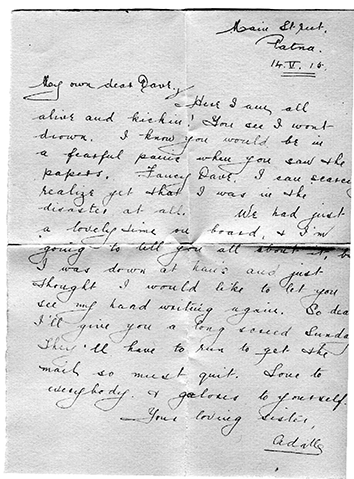 Main Street,
Patna.
14.V.16.
My own dear Dave,
Here I am, all
alive and kickin! You see I wont
drown. I know you would be in
a fearful panic when you saw the
papers. Fancy Dave, I can scarce
realize yet that I was in the
disaster at all. We had just
a lovely time on board, & I'm
going to tell you all about it, b
I was down at and just
thought I would like to let you
see my hand writing again. So dea
I'll give you a long screed Sunda
have to run to get the
mail so must quit. Love to
everybody & galores to yourself.
Your loving sister,